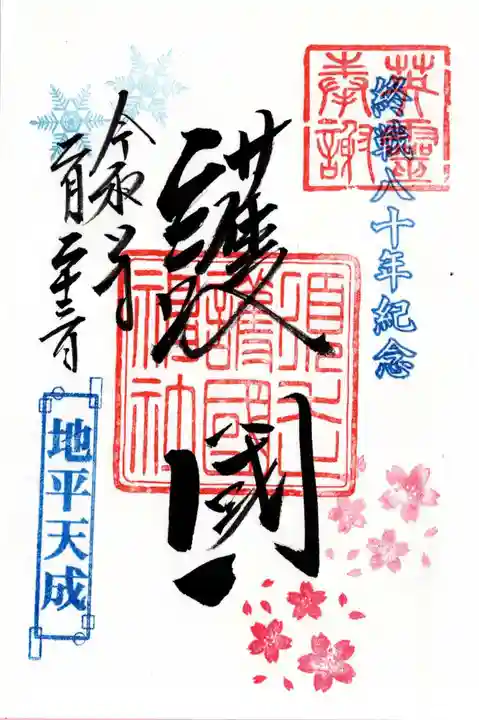 英靈
奉謝
終戦八十年紀念
護國
護國
神社
令和
二月二十三日
地平天成